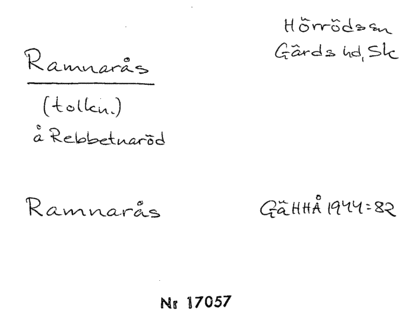 Hörrödssn
Gärds hd, Sk
Ramnarås
(tolkn.)
å Rebbetuaröd
Ramnarås
GäHHÅ 1944:82
Nr 17057